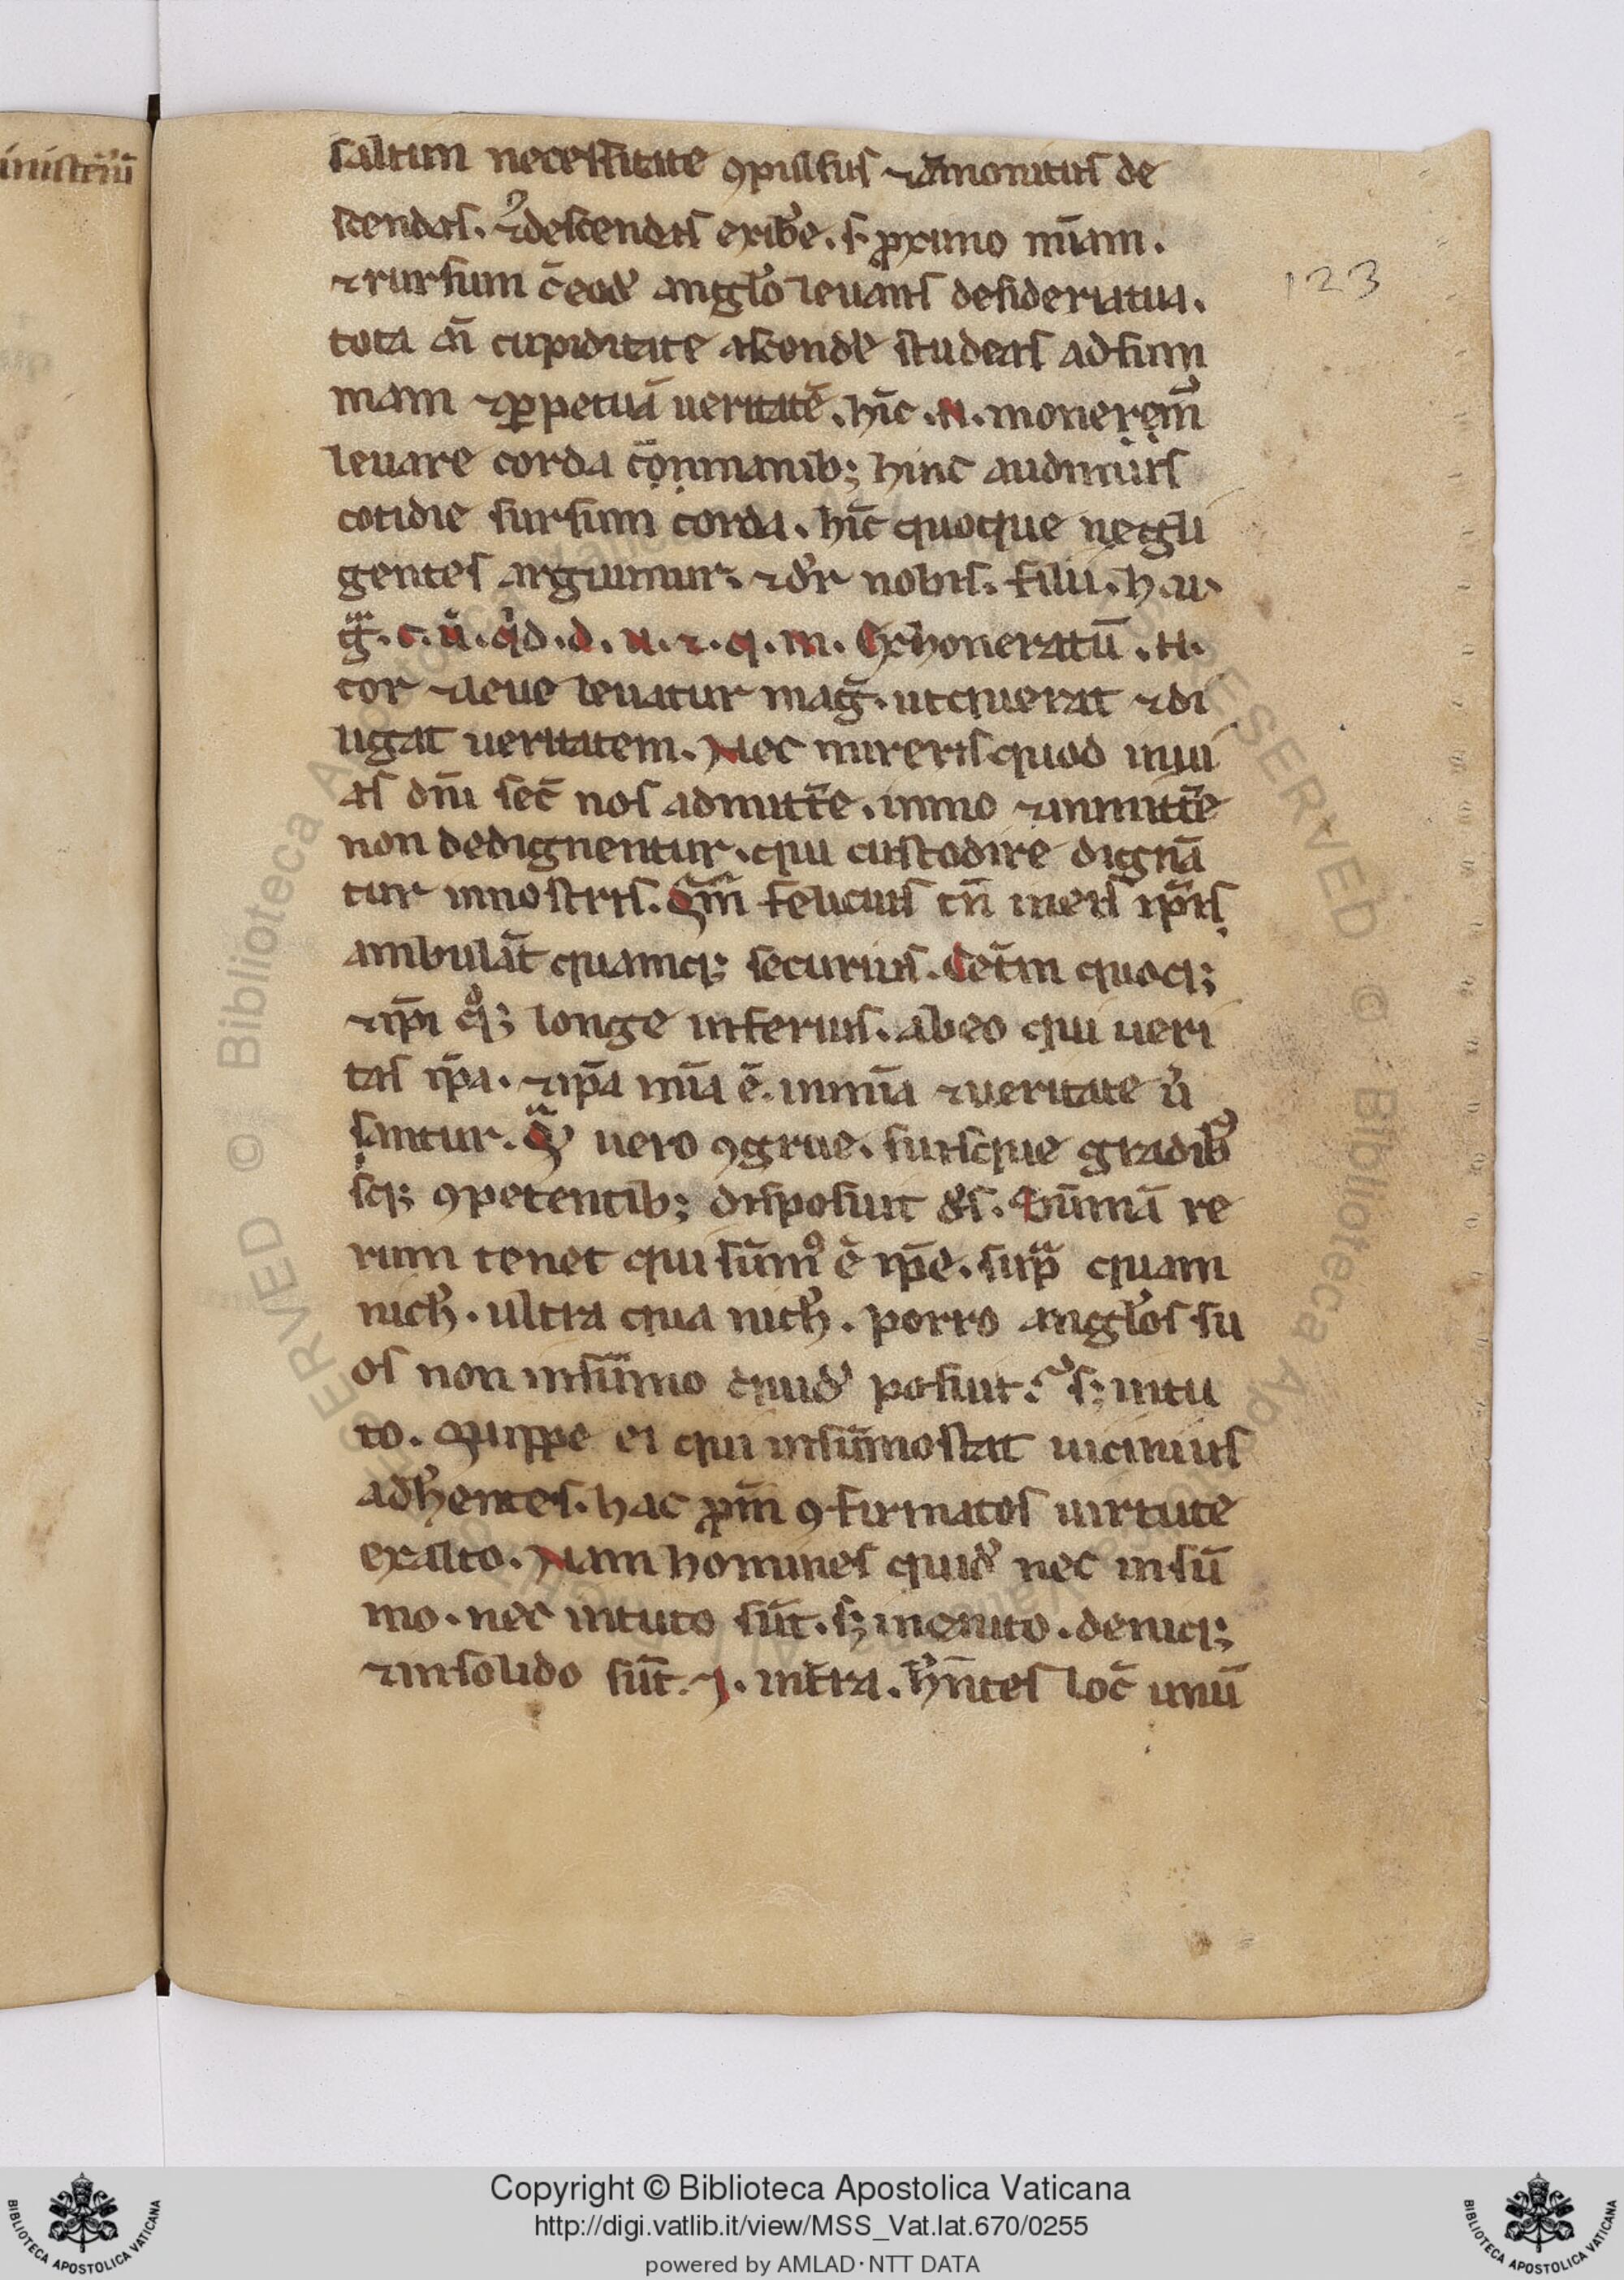 inistr̄iū
saltim necessitate ꝯpulsus ⁊admonitus de
scendas. ⁊descendas exibe̓. s. ꝓximo mīam.
⁊rursum c̄eod̓ angl̓o leuans desideriatua.
tota aī cupiditate ascend̓e studeas adsum
mam ⁊ꝑpetuā ueritatē. hīc .N. monerem̄
leuare corda cōnmanib; hinc audimus
cotidie sursum corda. hīc quoque negli
gentes arguimur. ⁊dr̄ nobis. filii. h. u.
g̃. c. ů. q̓d. d. u. ⁊. q. m. Exhoneratū. n.
cor ⁊leue leuatur mag̃. utquerat ⁊di
ligat ueritatem. Nec mireris quod inui
as dn̄i sec̄ nos admitt̄e. immo ⁊inmitt̄e
non dedignentur. qui custodire dignā
tur innostris. Q̃m̄ felicius tn̄ ineis ip̄is
ambulāt quamq; securius. Cet̄m quoq;
⁊ip̄i q̊q; longe inferius. abeo qui ueri
tas ip̄a. ⁊ip̄a mīa ē. inmīa ⁊ueritate u̓
santur. Q̃ uero ꝯgrue. suisque gradib̓
sq; ꝯpetentib; disposuit d̓s. Sūmā re
rum tenet qui sūm̓ ē ip̄e. sup̃ quam
nich̓. ultra qua nich̓. porro angl̓os su
os non insūmo quid̓ posuit. s; intu
to. Quippe ei qui insūmostat uicinius
adh̓entes. hac ꝓm̄ ꝯfirmatos uirtute
exalto. Nam homines quid̓ nec insū
mo. nec intuto sūt. s; incauto. deniq;
⁊insolido sūt. .i. int̄ra. h̓ntes loc̄ imū
123
Copyright © Biblioteca Apostolica Vaticana
http://digi.vatlib.it/view/MSS_Vat.lat.670/0255
powered by AMLAD·NTT DATA